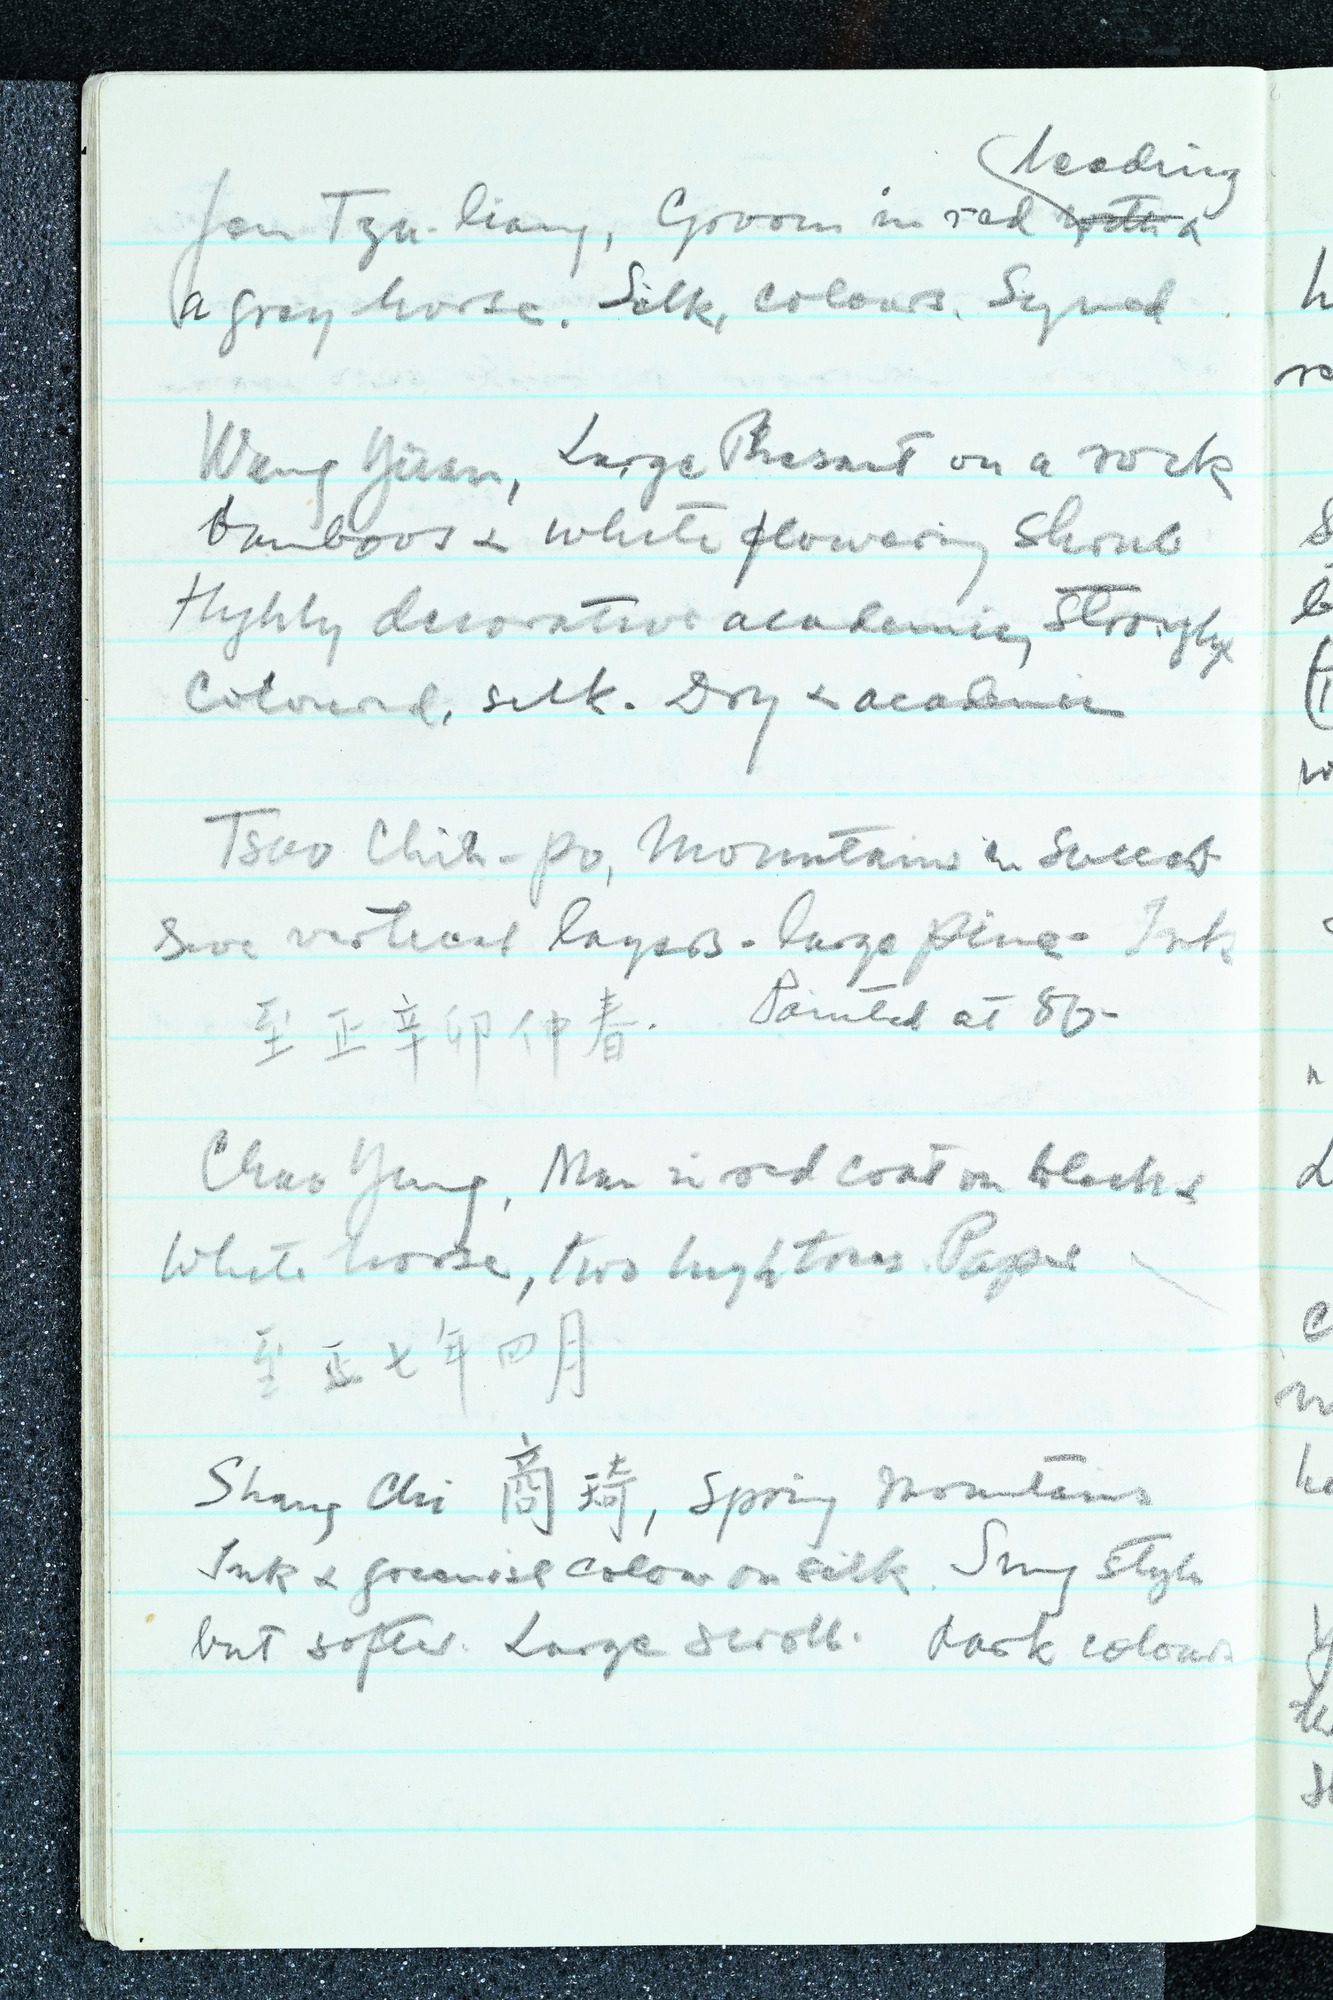 leading
Jen Tzu-liang, Groom in red with a
a grey horse. Silk, colours. Signed
Wang Yüan, Large Phesant on a rock
bamboos & white flowering shrub
Highly decorative academic, strongly
coloured, silk. Dry & academic
Tsao Chih-po, Mountains in succes-
sive vertical layers - large pines - Ink
至正辛卯仲春. Painted at 80-
Chao Yung, Man in red coat on black &
white horse, two high trees. Paper
至正七年四月
Shang Chi 商琦, Spring Mountains
Ink & greenish colour on silk. Sung style
but softer. Large scroll. dark colours